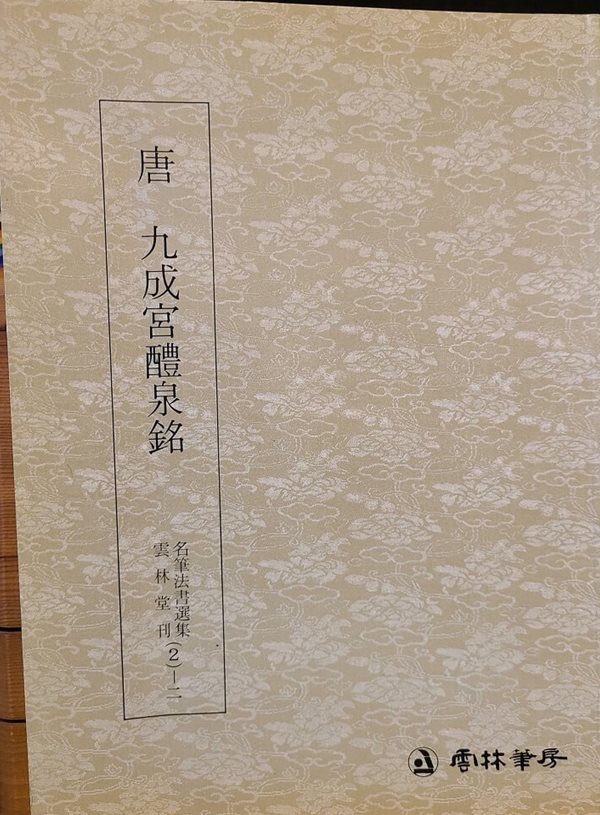 唐 九成宮醴泉銘
名筆法書選集(2)－二
雲林堂刊
雲林筆房